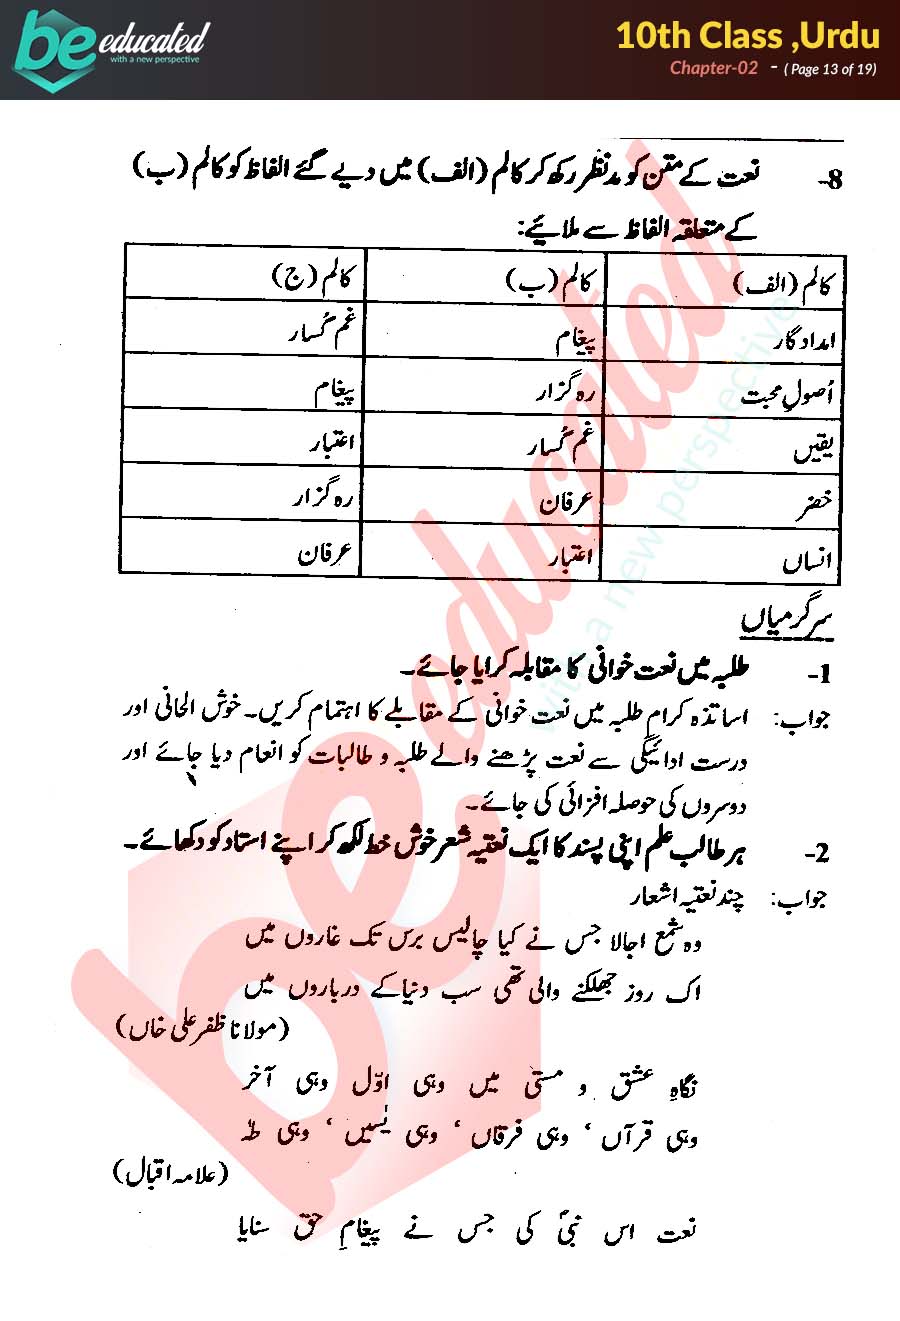 be educated
with a new perspective
10th Class ,Urdu
Chapter-02 - ( Page 13 of 19)
8- نعت کے متن کو مدنظر رکھ کر کالم (الف) میں دیے گئے الفاظ کو کالم (ب)
کے متعلقہ الفاظ سے ملائیے:
کالم (الف) کالم (ب) کالم (ج)
امداد گار پیغام غم گُسار
اُصولِ محبت رہ گزار پیغام
یقیں غم گُسار اعتبار
خضر عرفان رہ گزار
انساں اعتبار عرفان
سرگرمیاں
1- طلبہ میں نعت خوانی کا مقابلہ کرایا جائے۔
جواب: اساتذہ کرام طلبہ میں نعت خوانی کے مقابلے کا اہتمام کریں۔ خوش الحانی اور
درست ادائیگی سے نعت پڑھنے والے طلبہ و طالبات کو انعام دیا جائے اور
دوسروں کی حوصلہ افزائی کی جائے۔
2- ہر طالب علم اپنی پسند کا ایک نعتیہ شعر خوش خط لکھ کر اپنے استاد کو دکھائے۔
جواب: چند نعتیہ اشعار
وہ شمع اجالا جس نے کیا چالیس برس تک غاروں میں
اک روز جھلکنے والی تھی سب دنیا کے درباروں میں
(مولانا ظفر علی خاں)
نگاہِ عشق و مستی میں وہی اوّل وہی آخر
وہی قرآں ‘ وہی فرقاں ‘ وہی یٰسیں ‘ وہی طہٰ
(علامہ اقبال)
نعت اس نبیؐ کی جس نے پیغامِ حق سنایا
be educated
with a new perspective